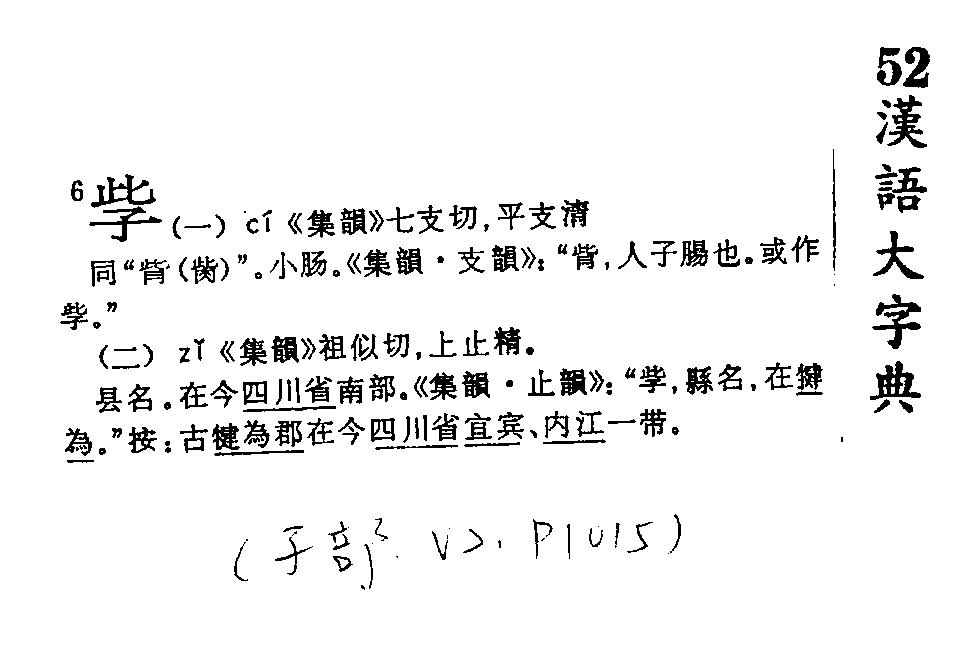 52漢語大字典
6 (一) cí《集韻》七支切,平支清
同“（）”。小肠。《集韻·支韻》：“，人子腸也。或作
。”
(二) zǐ《集韻》祖似切,上止精。
县名。在今四川省南部。《集韻·止韻》：“，縣名，在犍
為。”按：古犍為郡在今四川省宜宾、内江一带。
(子部3. V2. P1015)